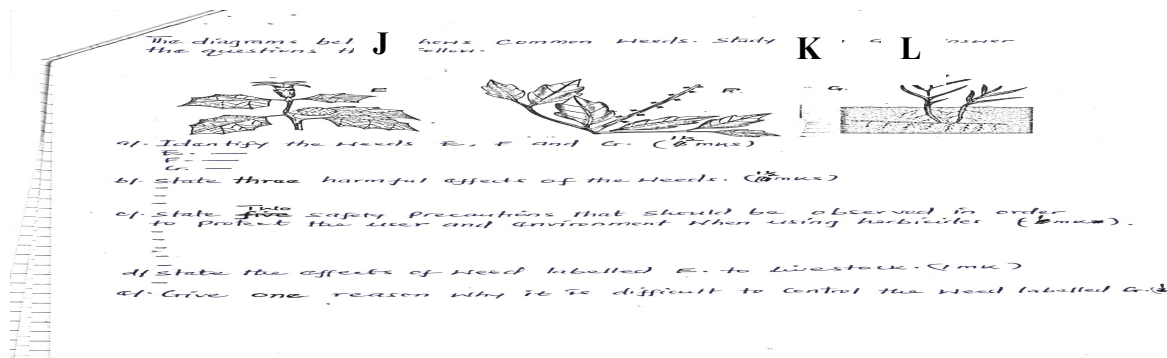 The diagrams bel J hows common weeds. Study K L nswer
the questions th ollow.
E
F.
G.
a). Identify the weeds E, F and G. ( mks)
E. —
F. —
G. —
b). State three harmful effects of the weeds. ( mks)
c). State Two five safety precautions that should be observed in order
to protect the user and environment when using herbicides ( mks).
d) State the effects of weed labelled E. to livestock. (1 mk)
e). Give one reason why it is difficult to control the weed labelled G. (